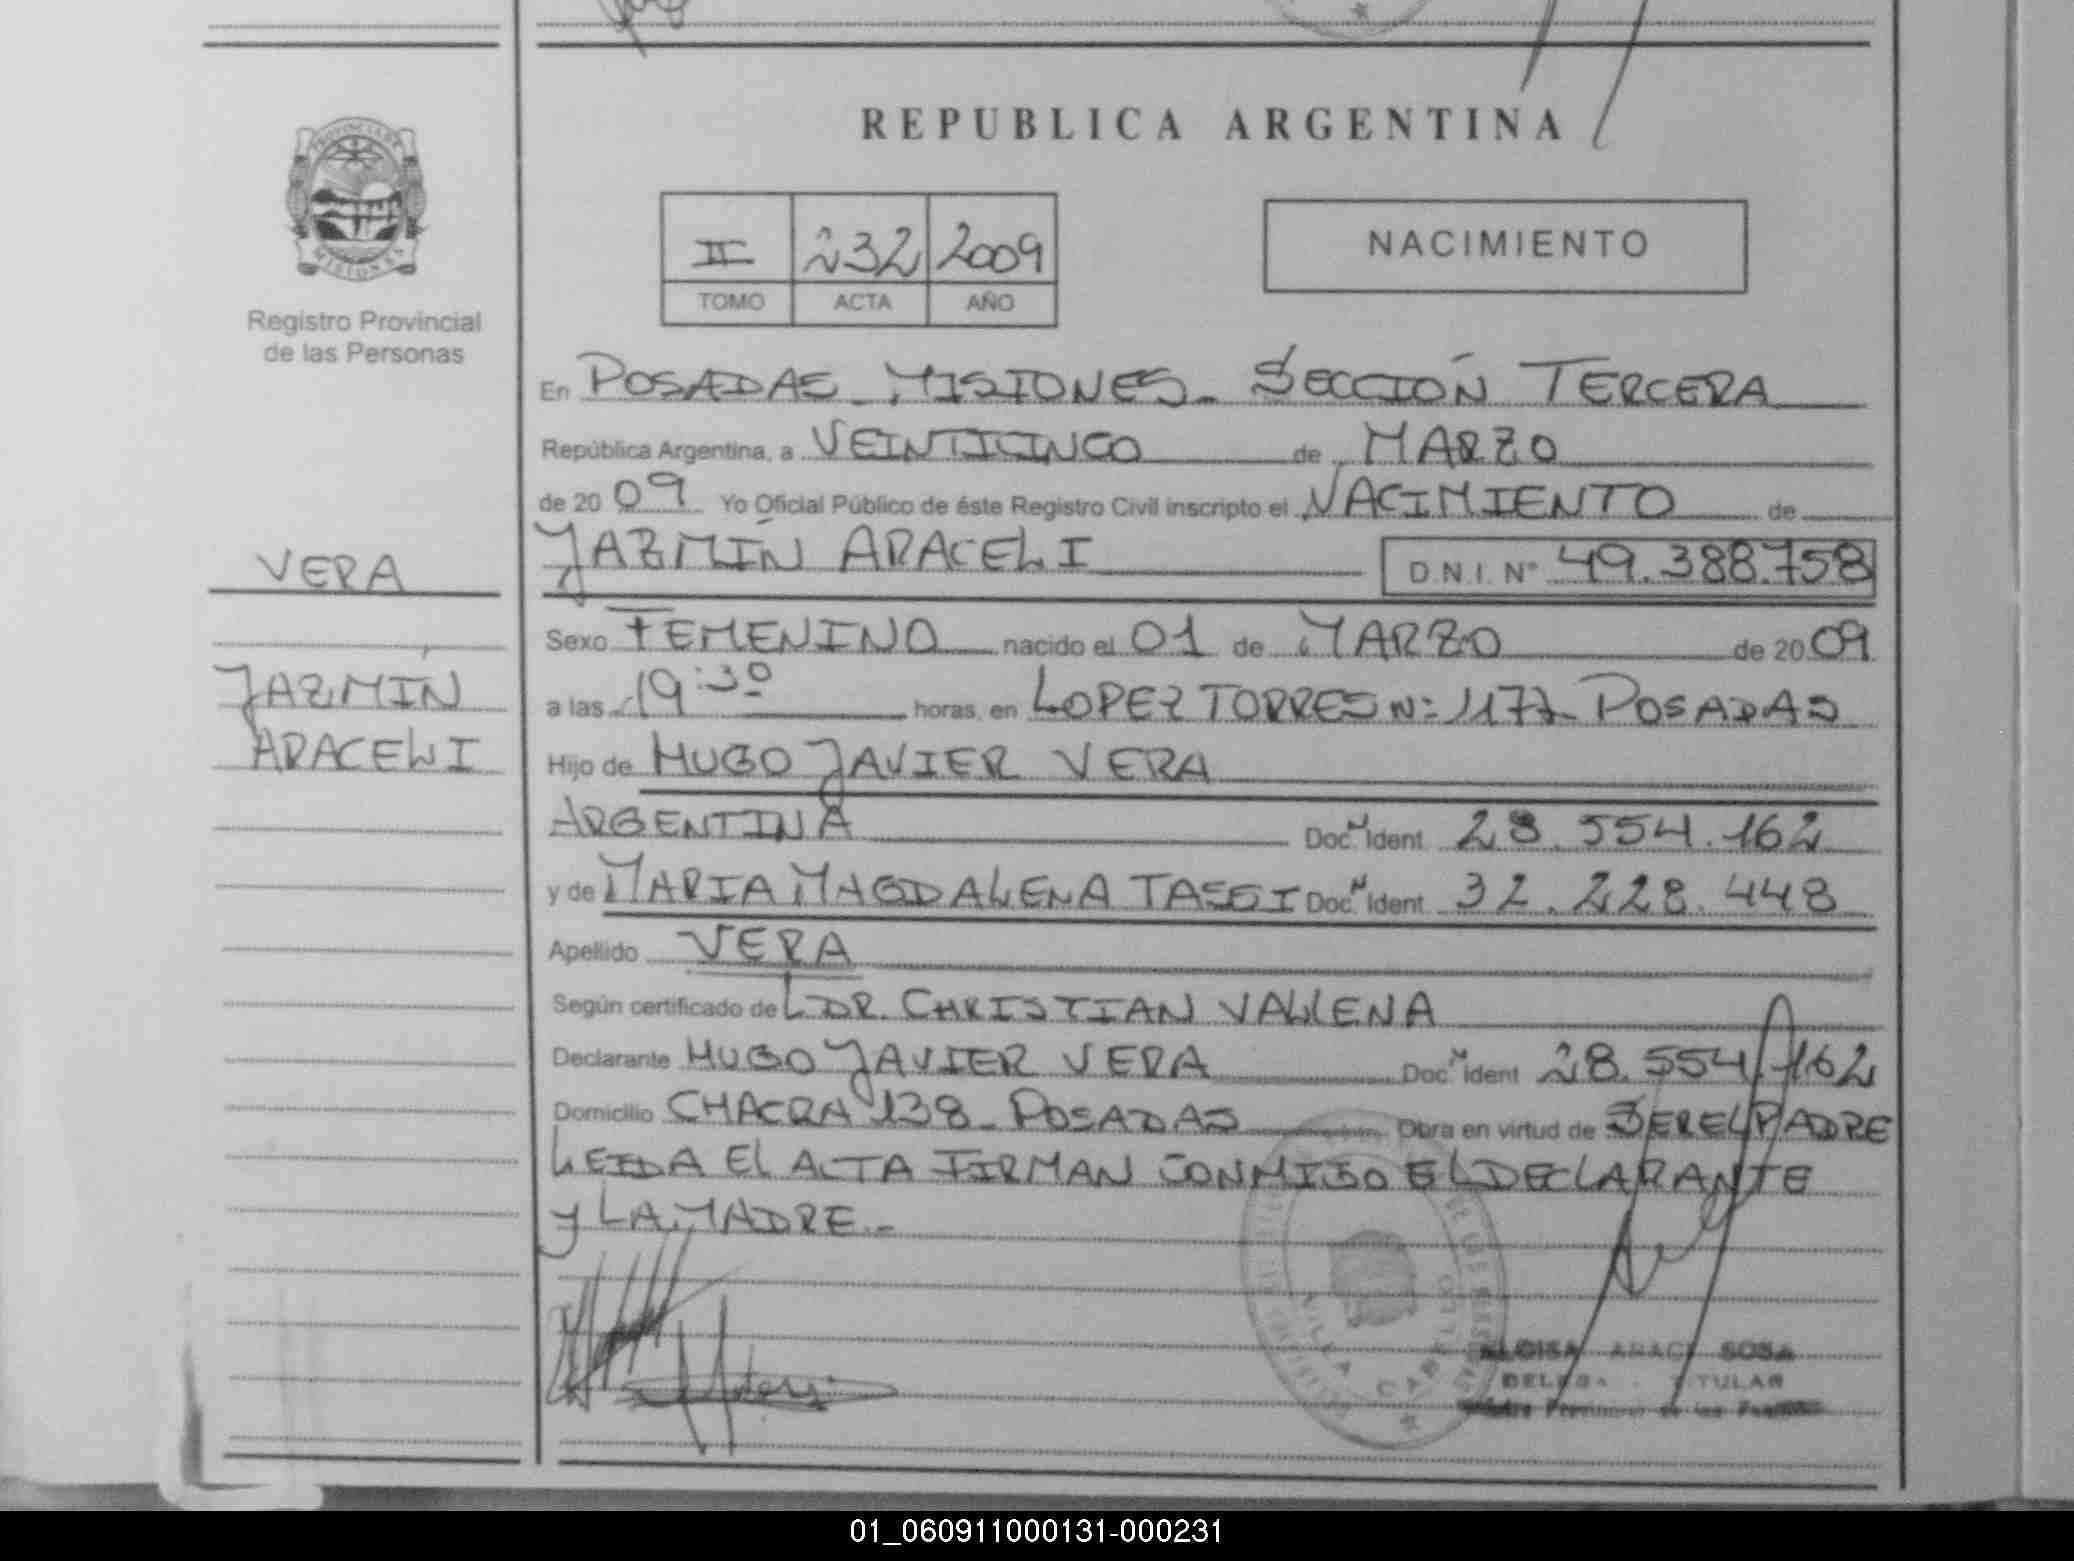 REPUBLICA ARGENTINA
PROVINCIA DE
MISIONES
Registro Provincial
de las Personas
II 232 2009
TOMO ACTA AÑO
NACIMIENTO
En POSADAS - MISIONES - SECCIÓN TERCERA
República Argentina, a VEINTICINCO de MARZO
de 2009 Yo Oficial Público de éste Registro Civil inscripto el NACIMIENTO de
JAZMÍN ARACELI D.N.I. Nº 49.388.758
VERA
JAZMÍN
ARACELI
Sexo FEMENINO nacido el 01 de MARZO de 2009
a las 19:30 horas, en LOPEZ TORRES Nº 1177 POSADAS
Hijo de HUGO JAVIER VERA
ARGENTINA Doc. Ident. 28.554.162
y de MARIA MAGDALENA Doc. Ident. 32.228.448
Apellido VERA
Según certificado de DR. CHRISTIAN
Declarante HUGO JAVIER VERA Doc. Ident 28.554.162
Domicilio CHACRA 138 - POSADAS Obra en virtud de SER EL PADRE
LEIDA EL ACTA FIRMAN CONMIGO EL DECLARANTE
Y LA MADRE.-
SOSA
TITULAR
01_060911000131-000231